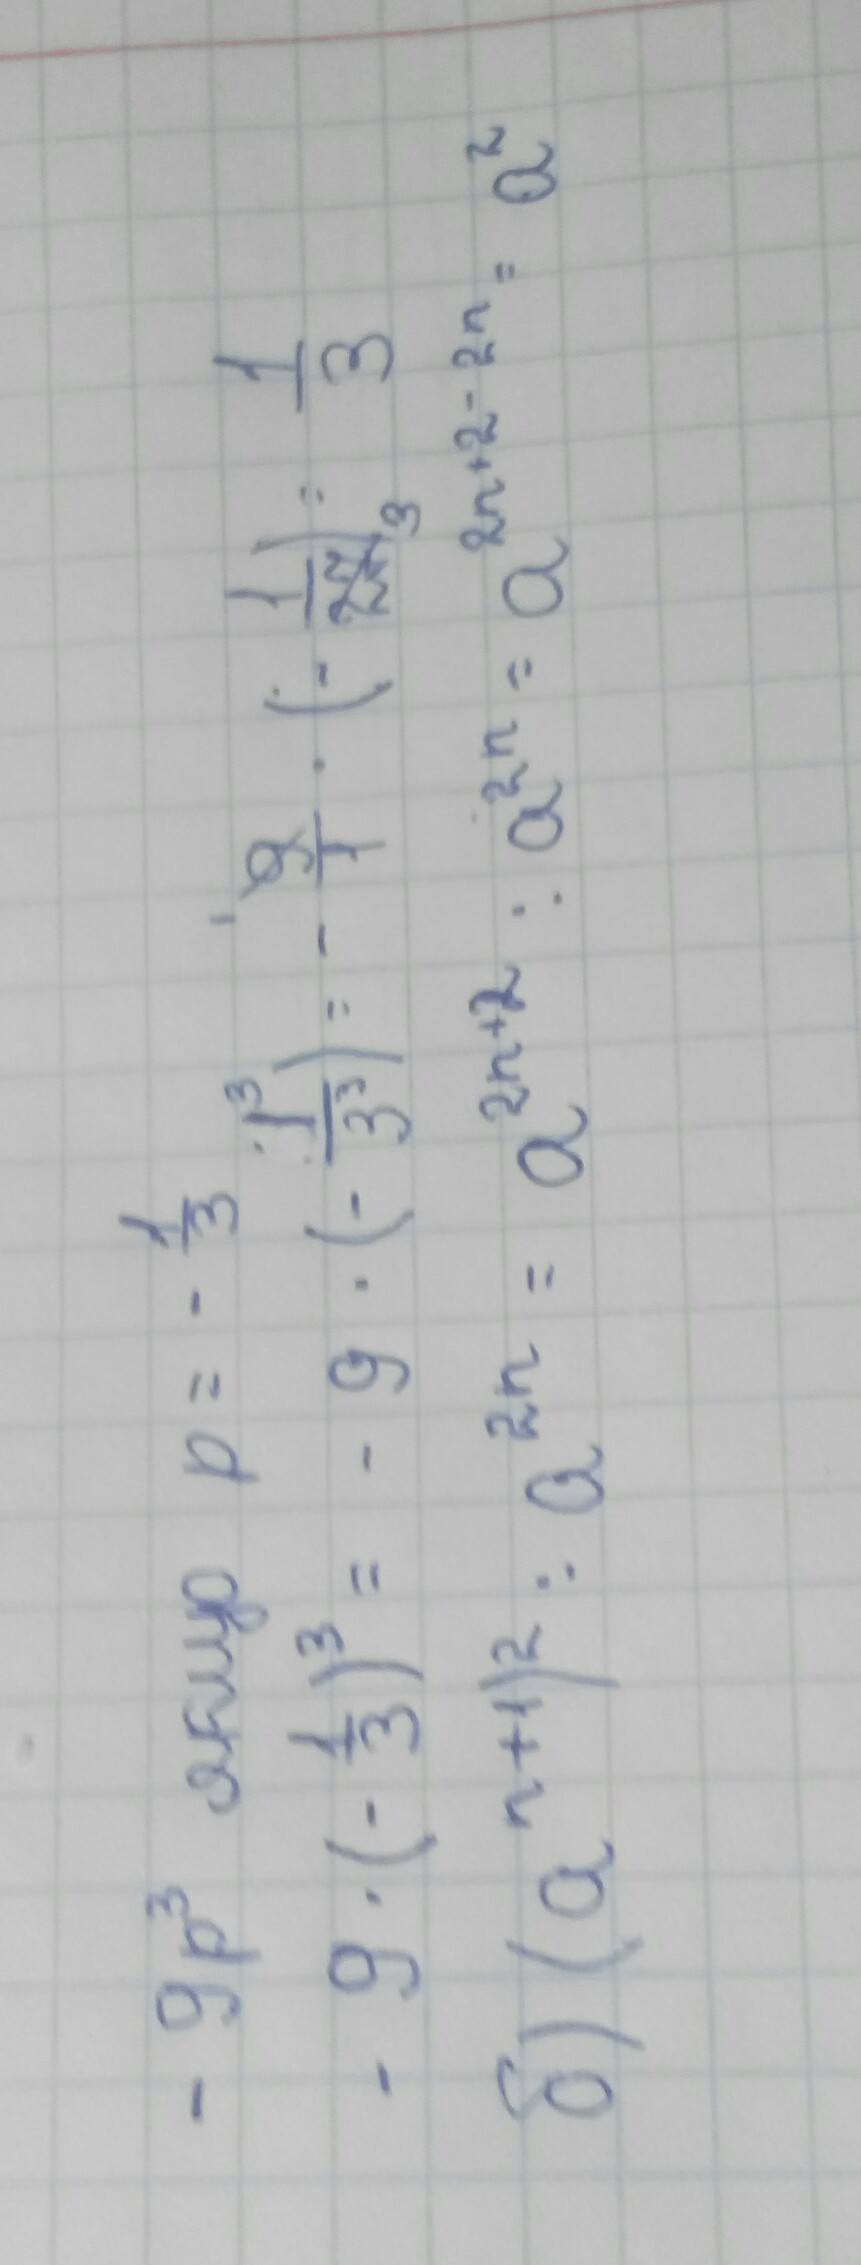 - 9p³ якщо p = - 1/3
- 9 · (- 1/3)³ = - 9 · (- 1³/3³) = - 9/1 · (- 1/27) = 1/3
б) (aⁿ⁺¹)² : a²ⁿ = a²ⁿ⁺² : a²ⁿ = a²ⁿ⁺²⁻²ⁿ = a²